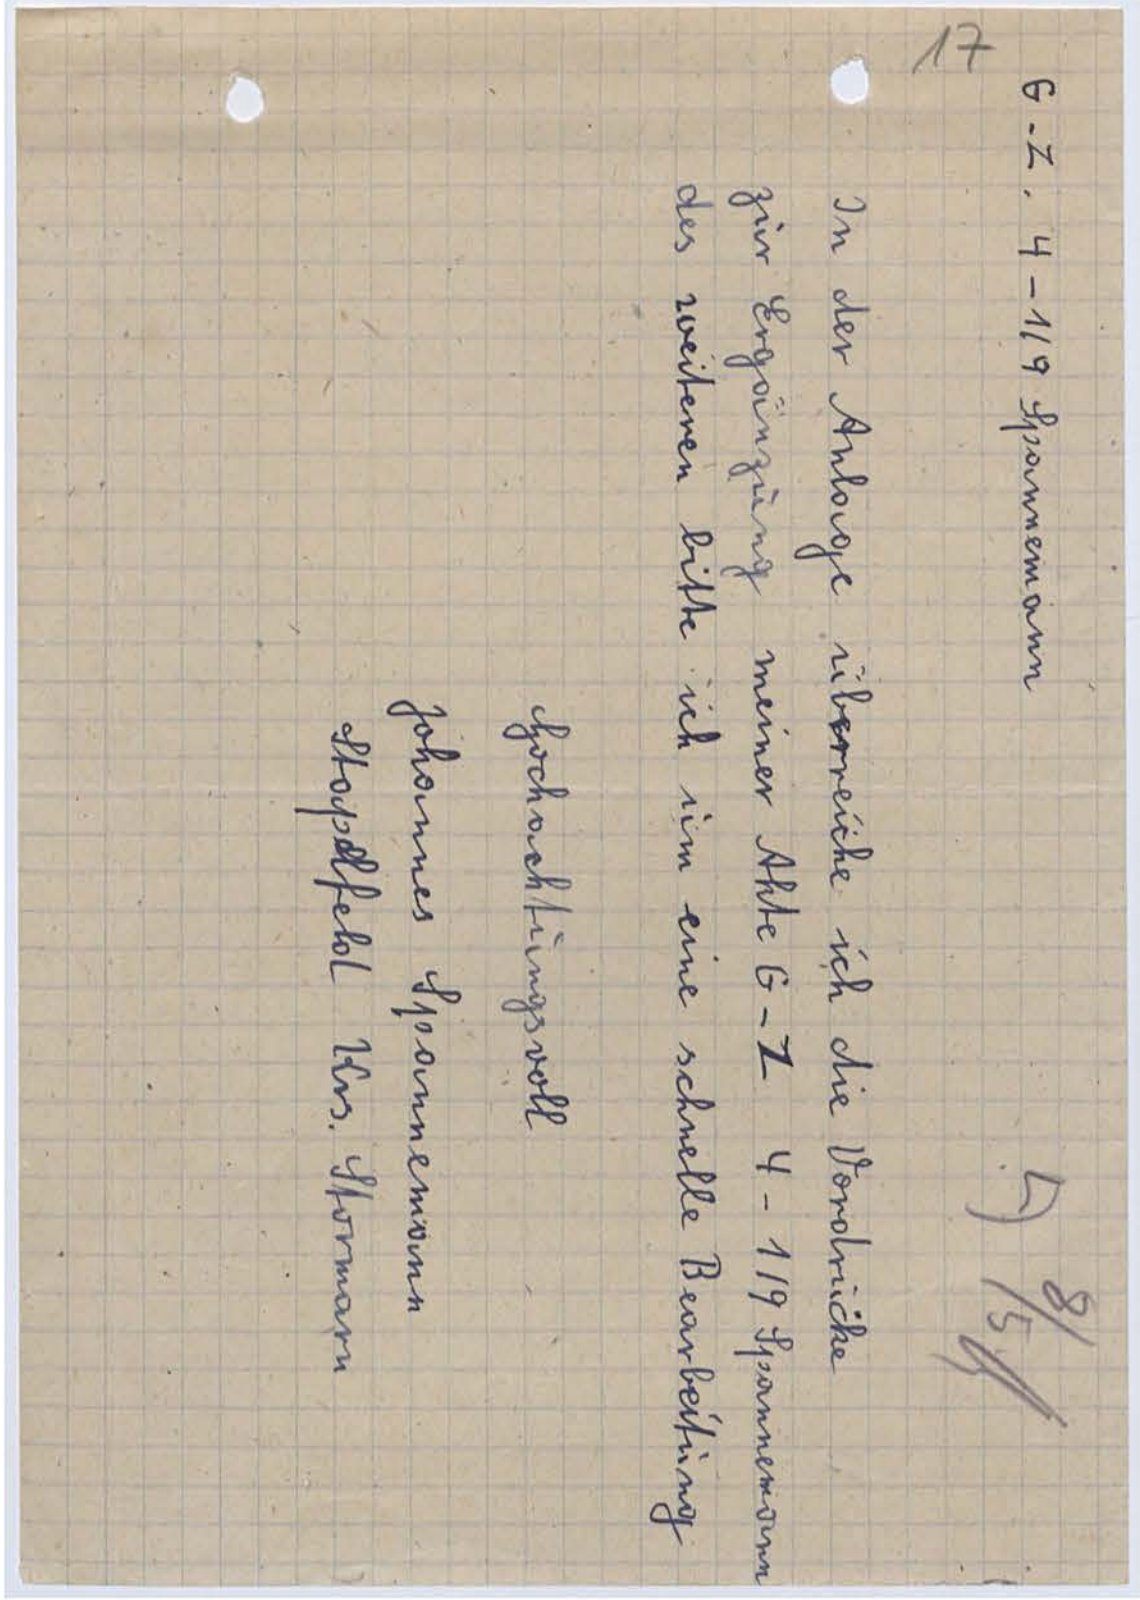 17
G.-Z. 4-1/9 Spannemann
8/5
In der Anlage überreiche ich die Vordrücke
zur Ergänzung meiner Akte G-Z 4-1/9 Spannemann
des weiteren bitte ich um eine schnelle Bearbeitung
Hochachtungsvoll
Johannes Spannemann
Stapelfeld Krs. Stormarn